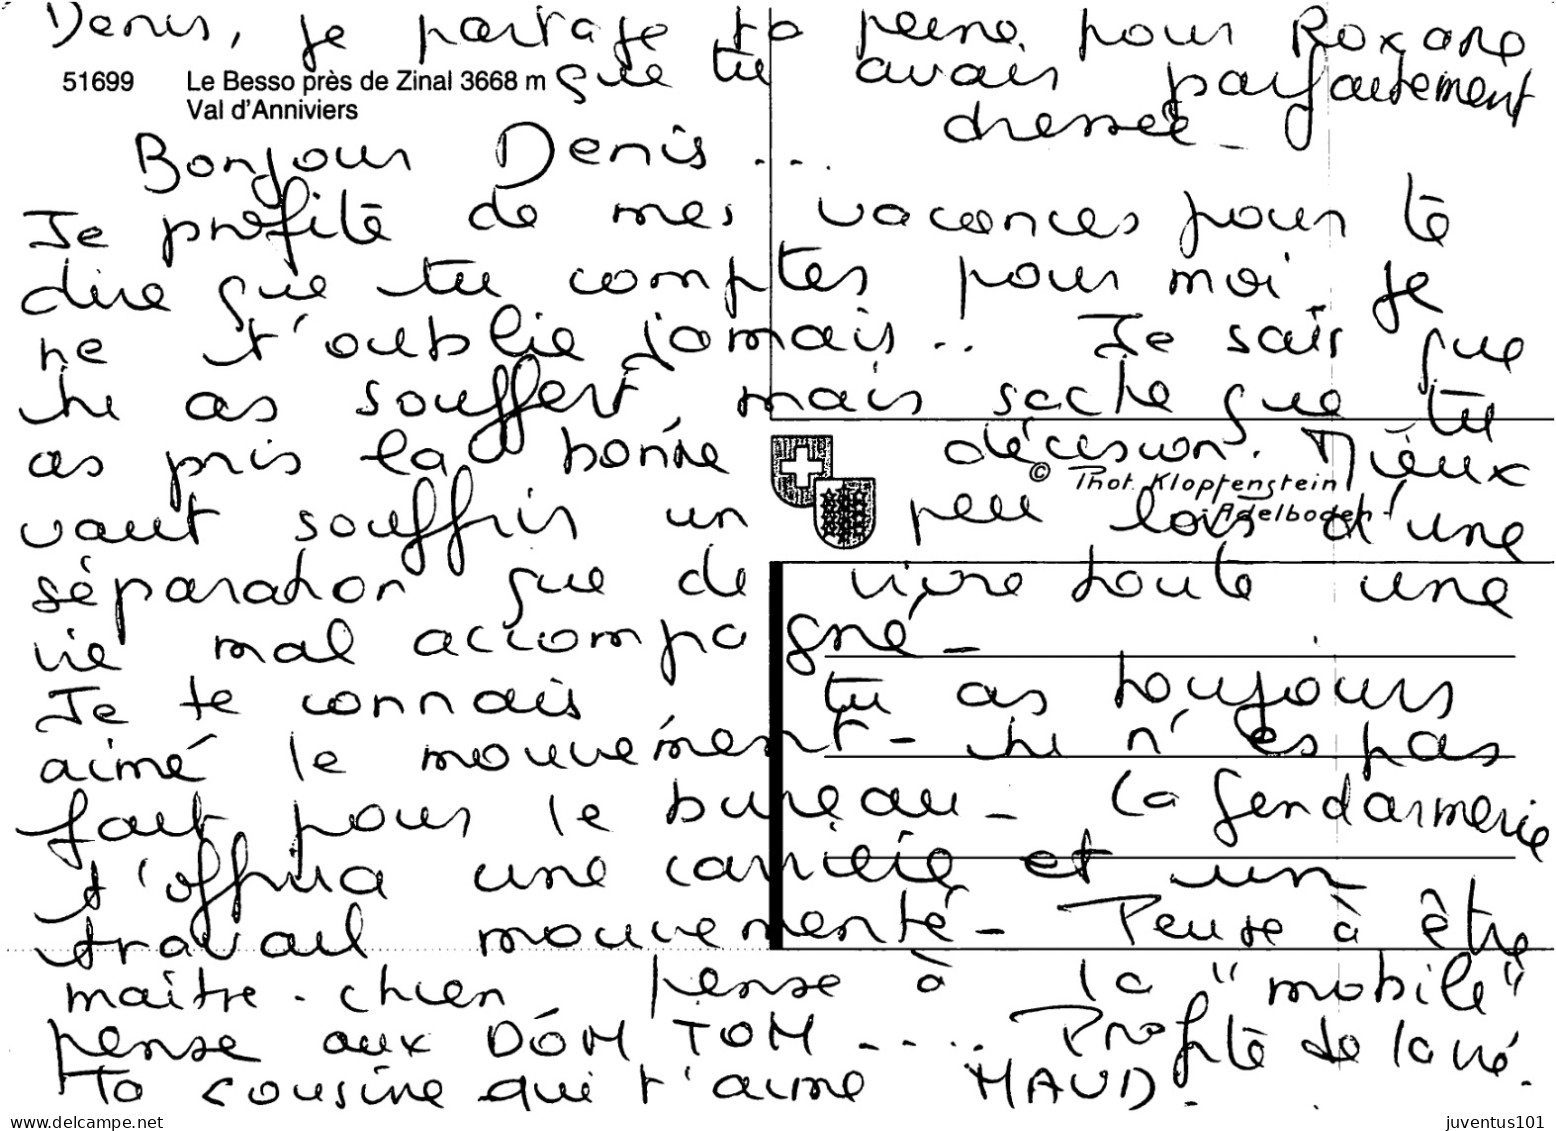 Denis, je partage ta peine pour Roxane
que tu avais parfaitement
dressée_
51699 Le Besso près de Zinal 3668 m
Val d'Anniviers
Bonjour Denis ...
Je profite de mes vacances pour te
dire que tu comptes pour moi. Je
ne t'oublie jamais .. Je sais que
tu as souffert, mais sache que tu
as pris la bonne décision. Mieux
© Phot. Klopfenstein
Adelboden
vaut souffrir un peu lors d'une
séparation que de vivre toute une
vie mal accompagné_
Je te connais tu as toujours
aimé le mouvement - tu n'es pas
fait pour le bureau_ La gendarmerie
t'offrira une carrière et un
travail mouvementé_ Pense à être
maître-chien, pense à la "mobile"
pense aux DÓM TOM ..... Profite de la vie.
Ta cousine qui t'aime MAUD.
delcampe.net
juventus101